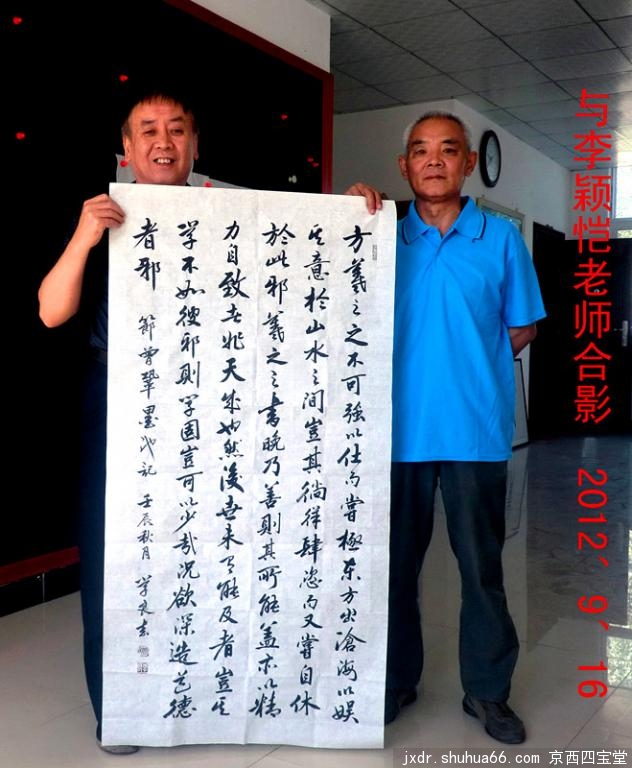 方羲之之不可強以仕而嘗極东方出滄海以娱
其意於山水之间豈其徜徉肆恣而又嘗自休
於此邪羲之之書晚乃善則其所能盖亦以精
力自致者非天成也然後世未有能及者豈其
学不如彼邪則学固豈可以少哉况欲深造道德
者邪
節曾鞏墨池记 壬辰秋月
与李颖恺老师合影 2012、9、16
jxdr.shuhua66.com 京西四宝堂